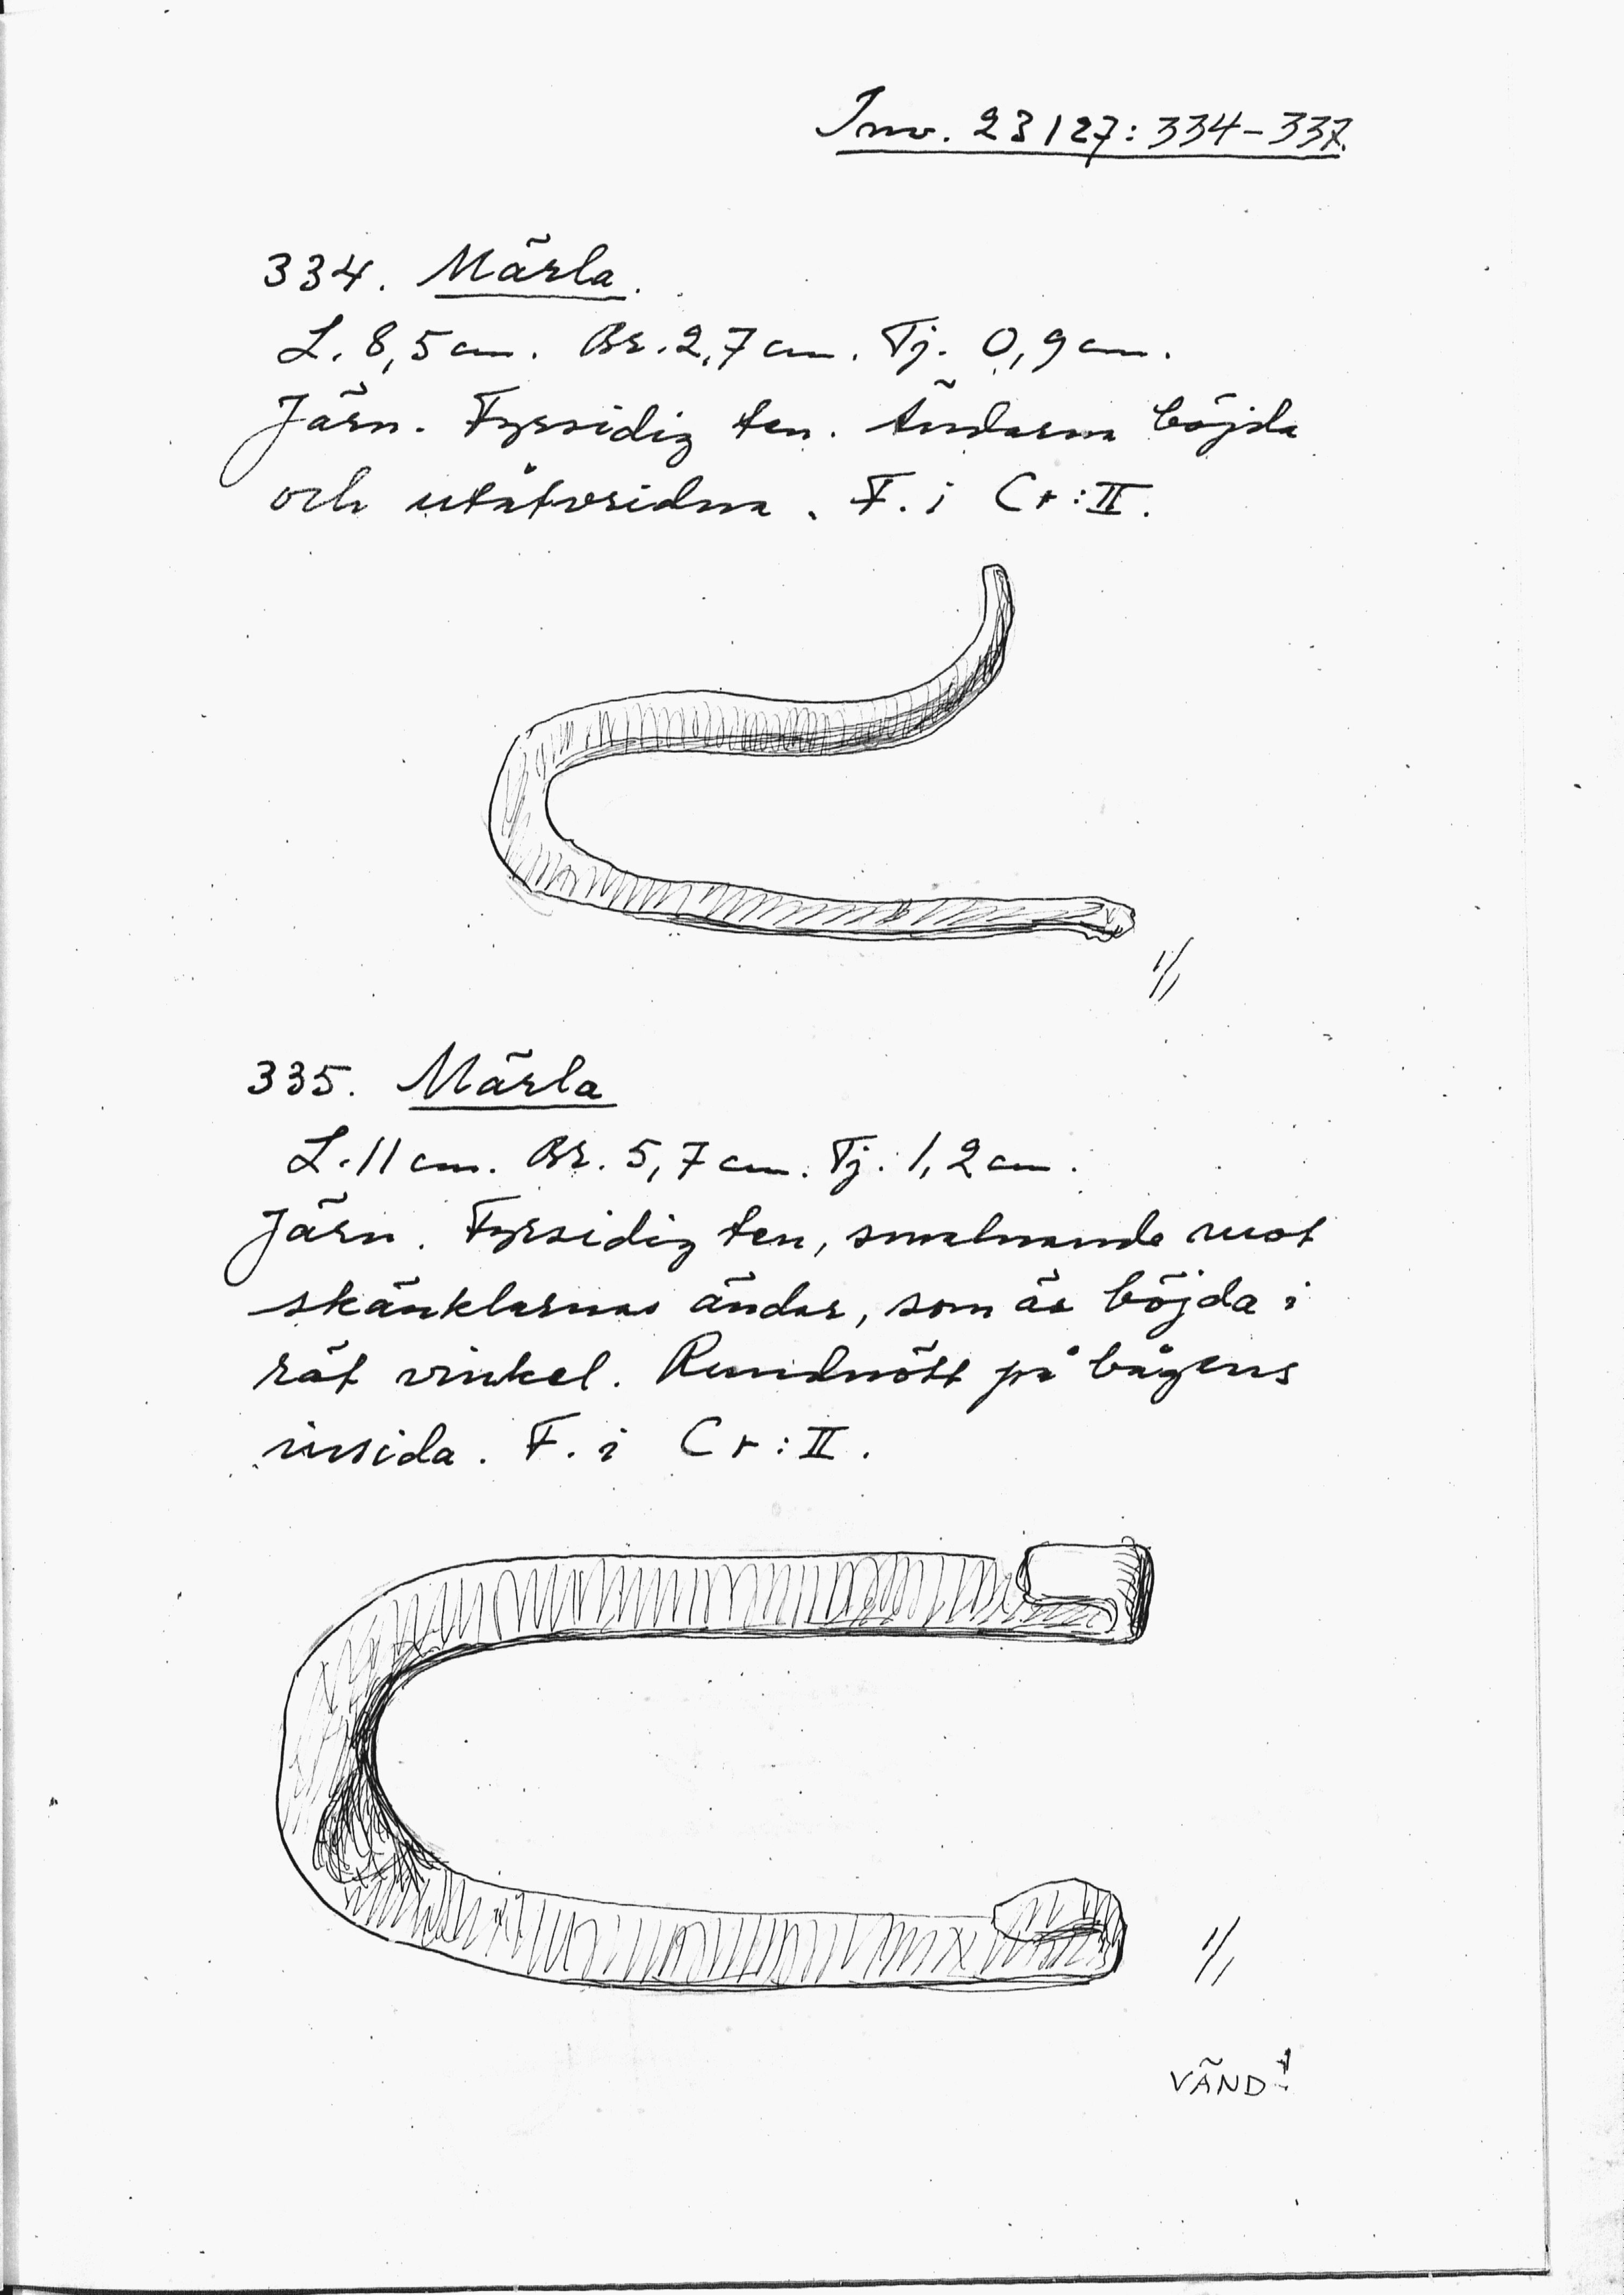 Inv. 23127:334-337.
334. Märla.
L. 8,5 cm. Br. 2,7 cm. Tj. 0,9 cm.
Järn. Fyrsidig ten. Ändarna böjda
och utåtvridna. F. i Cr:II.
1/1
335. Märla
L. 11 cm. Br. 5,7 cm. Tj. 1,2 cm.
Järn. Fyrsidig ten, smalnande mot
skänklarnas ändar, som är böjda i
rät vinkel. Rundnött på bågens
insida. F. i Cr:II.
1/1
VÄND!